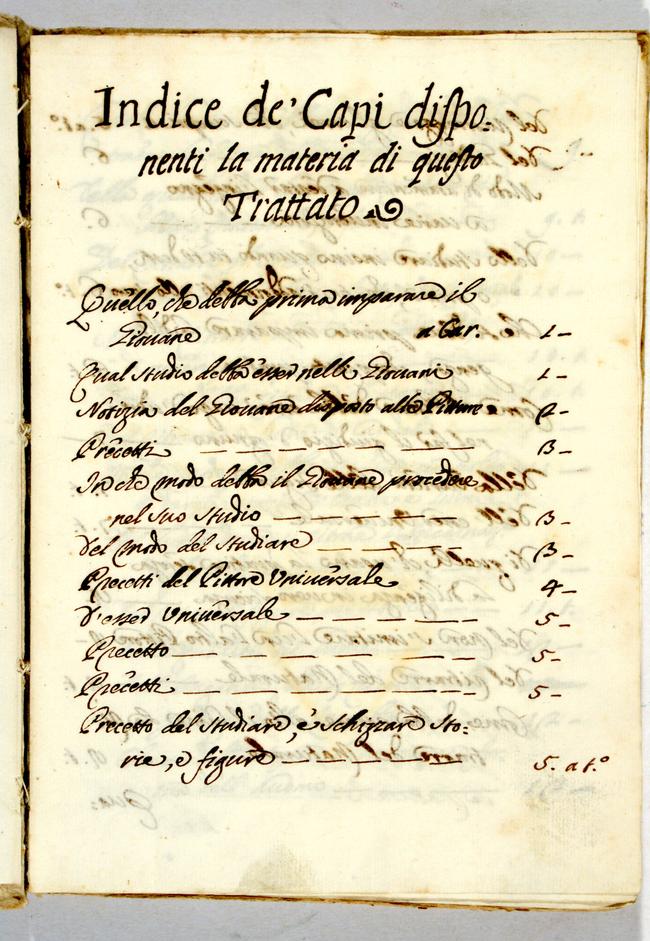 Indice de' Capi dispo:
nenti la materia di questo
Trattato
Quello, che debba prima imparare il
Giovane a Car. 1 –
Qual studio debba esser nelli Giovani 1 –
Notizia del Giovane disposto alla Pittura 2 –
Precetti — — — — — — — — 3 –
In che modo debba il Giovane procedere
nel suo studio — — — — — 3 –
Del modo del studiare — — — — 3 –
Precetti del Pittore Universale 4 –
D'esser Universale — — — — — 5 –
Precetto — — — — — — — — 5 –
Precetti — — — — — — — — 5 –
Precetto del studiare, è schizzare Sto:
rie, e figure — — — — — — 5. a t.º